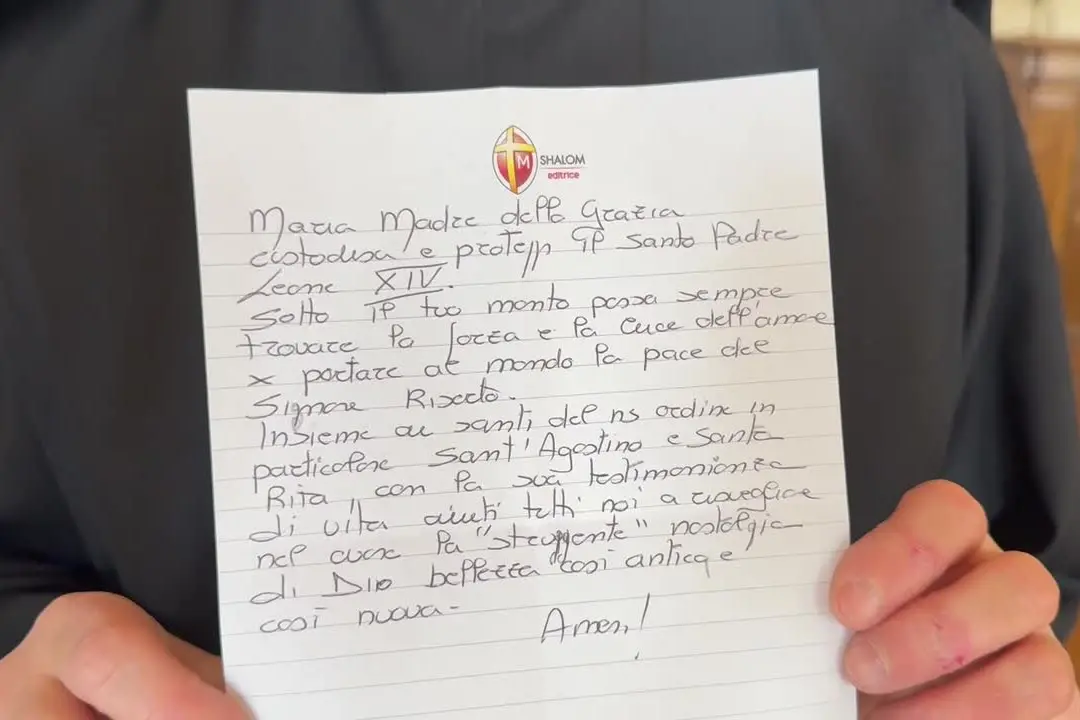 M SHALOM
editrice
Maria Madre della Grazia
custodisca e proteggi il Santo Padre
Leone XIV.
Sotto il tuo manto possa sempre
trovare la forza e la luce dell'amore
x portare al mondo la pace del
Signore Risorto.
Insieme ai santi del ns ordine in
particolare Sant'Agostino e Santa
Rita, con la sua testimonianza
di vita aiuti tutti noi a risvegliare
nel cuore la "struggente" nostalgia
di Dio bellezza "così antica e
così nuova-
Amen!